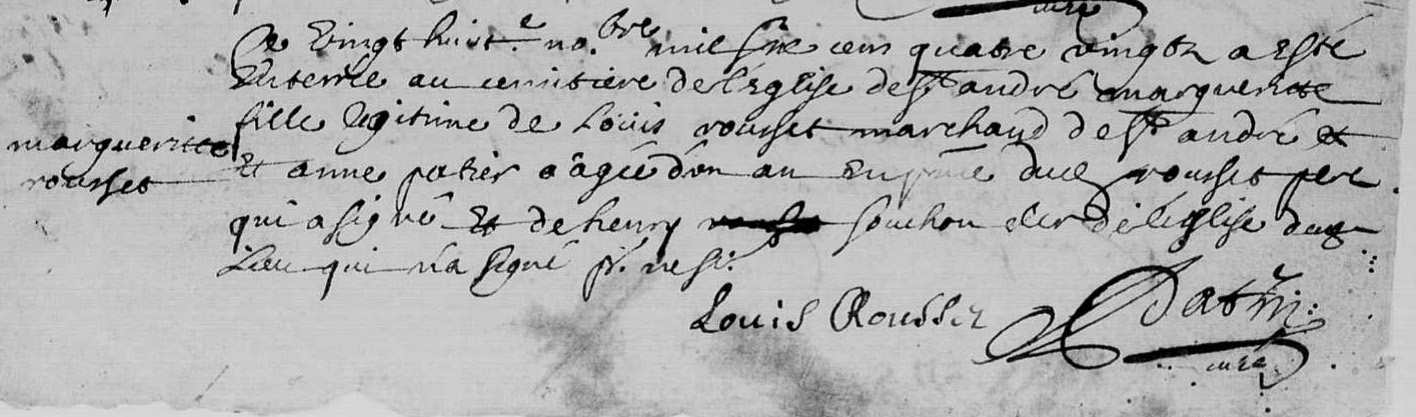 curé
Ce Vingt huict.e no.bre mil six cens quatre vingtz a Esté
Enterrée au cemitiere de l'Eglise de St andré margueritte
margueritte
rousset
fille legitime de Louis rousset marchand de St andré et
Et anne patier aâgée d'un an En pnce dud rousset pere
qui a signé Et de henry souchon clerc de l'église dud
Lieu qui n'a signé pr. ne sr.
Louis Rousset
curé